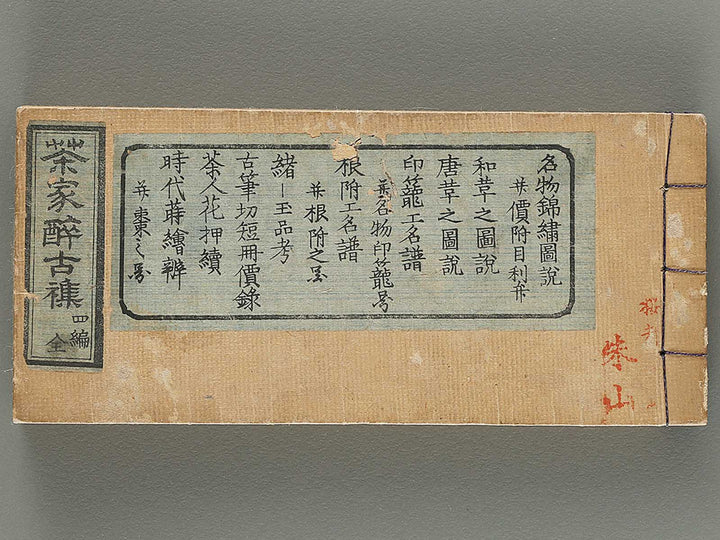 名物錦繡圖說
并價附目利弁
和革之圖說
唐革之圖說
印籠工名譜
并名物印籠号
根附工名譜
并根附之
緒〆玉品考
古筆切短冊價錄
茶人花押續
時代蒔繪辨
并棗之号
茶家醉古襍 四編 全
山